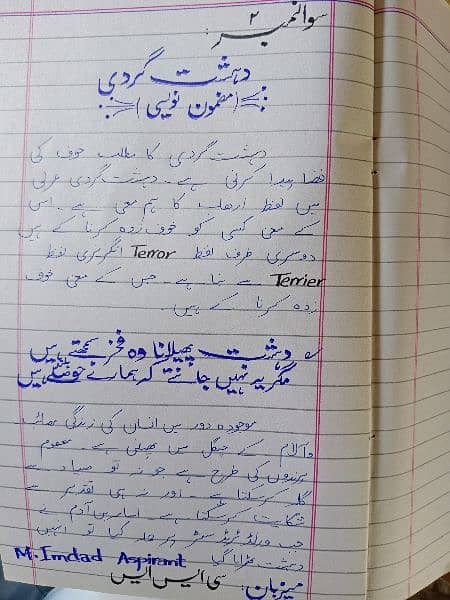 سوال نمبر ۲
دہشت گردی
(مضمون نویسی)
دہشت گردی کا مطلب خوف کی
فضا پیدا کرنی ہے۔ دہشت گردی عربی
میں لفظ ارھاب کا ہم معنی ہے۔ اس
کے معنی کسی کو خوف زدہ کرنا کے ہیں
دوسری طرف لفظ Terror انگریزی لفظ
Terrier سے بنا ہے۔ جس کے معنی خوف
زدہ کرنا کے ہیں۔
دہشت پھیلانا وہ فخر سمجھتے ہیں
مگر یہ نہیں جانتے کہ ہمارے
موجودہ دور میں انسان کی زندگی مصائب
وآلام کے جنگل میں پھیلی ہے۔ معصوم
پرندوں کی طرح ہے جو نہ تو صیاد سے
گلہ کرسکتا ہے۔ اور نہ ہی تقدیر سے
شکایت کرسکتا ہے۔ اسامہ بن لادن نے
جب ورلڈ ٹریڈ سنٹر پر حملہ کیا تو انہیں
دہشت گیا
M. Imdad Aspirant
میزبان: سی ایس ایس